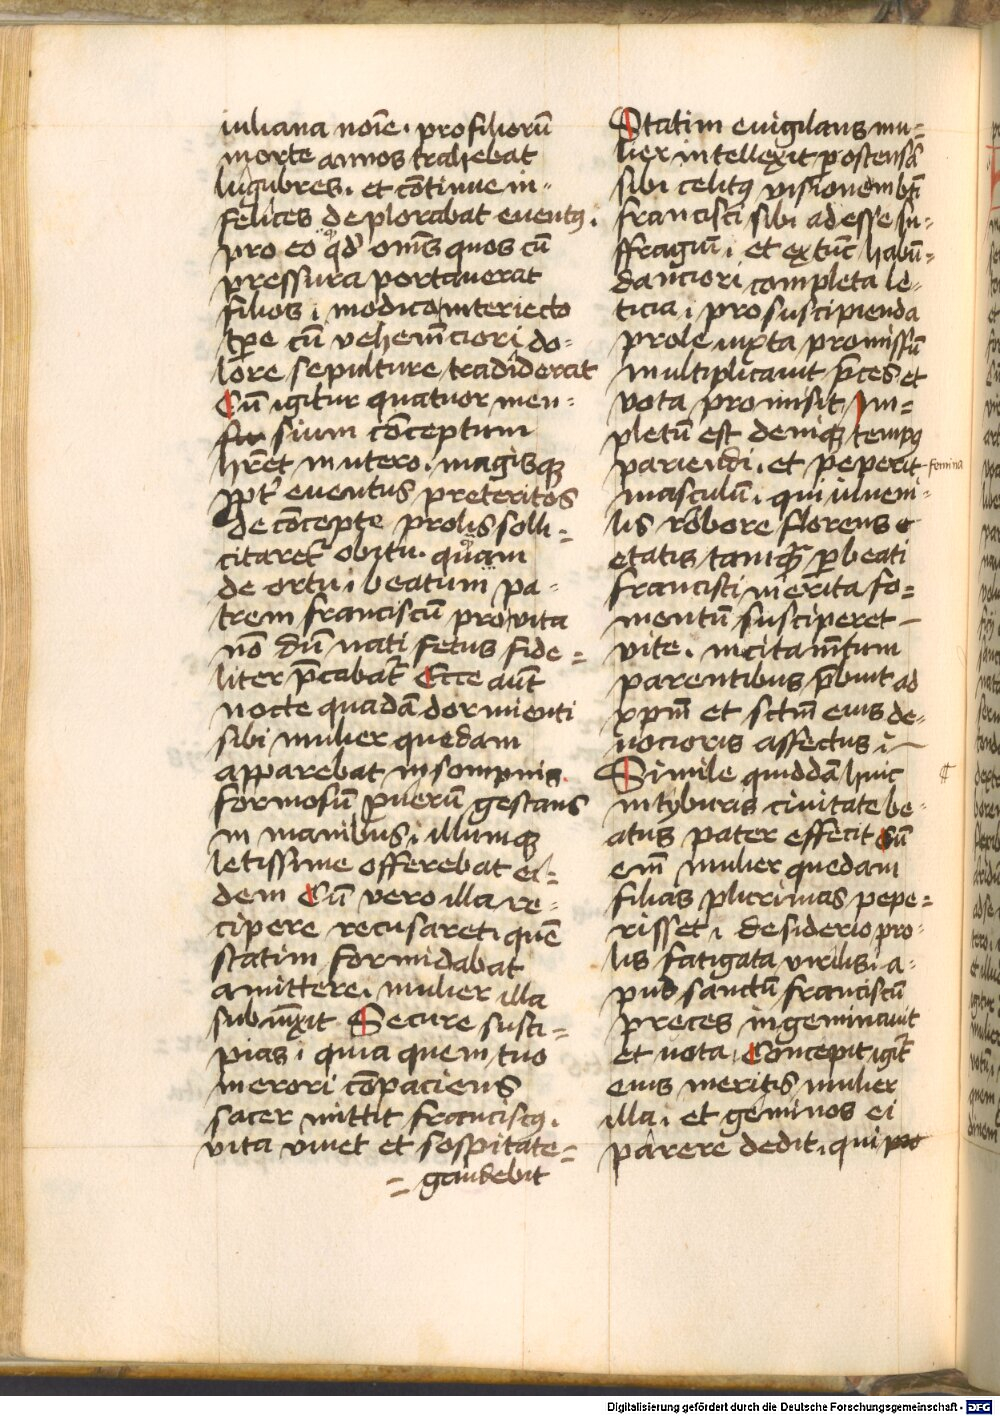 iuliana noīe · pro filiorū
morte annos trahebat
lugubres · et cōtinue in-
felices deplorabat eventꝯ ·
pro eo qd' om̄s quos cū
pressura portaverat
filios i modico interiecto
tpe cū vehemēciori do=
lore sepulture tradiderat
Cū igitur quatuor men=
sium cōceptum
hr̄et in utero · magisqꝫ
ꝓpt' eventus preteritos
de cōcepte prolis solli=
citaret' obitu · quam
de ortu i beatum pa-
trem franciscū pro vita
nō dū nati fetus fide=
liter p̄cabat' Ecce aūt
nocte quadā dormienti
sibi mulier quedam
apparebat in sompnis
formosū puerū gestans
in manibus i illumqꝫ
letissime offerebat ei=
dem Cū vero illa re=
cipere recusaret i quē
statim formidabat
amittere · mulier illa
subiūxit Secure susci=
pias i quia quem tuo
merori cōpaciens
sacer mittit franciscꝯ ·
vita vivet et sospitate=
= gaudebit
Statim evigilans mu=
lier intellexit ꝑ ostensā
sibi celitꝯ visionem bti
francisci sibi adesse su=
ffragiū i et extūc habū=
danciori completa le-
ticia i pro suscipienda
prole iuxta promissū
multiplicavit p̄ces et
vota promisit Im=
pletū est deniqꝫ tempꝯ
pariendi · et peperit femina
masculū · qui iuveni-
lis robore florens
etatis tamqꝫ ꝑ beati
francisci merita fo=
mentū susciperet
vite · incitam̄tum
parentibus p̄buit ad
xp̄m et sctm̄ eius de-
vocioris affectus i
Simile quiddā huic ¶
in tyburis civitate be-
atus pater effecit Cū
em̄ mulier quedam
filias plurimas pepe=
risset i desiderio pro-
lis fatigata virilis i a-
pud sanctū franciscū
preces ingeminavit
et vota i Concepit igit'
eius meritis mulier
illa · et geminos ei
parere dedit · qui pro
Digitalisierung gefördert durch die Deutsche Forschungsgemeinschaft - DFG